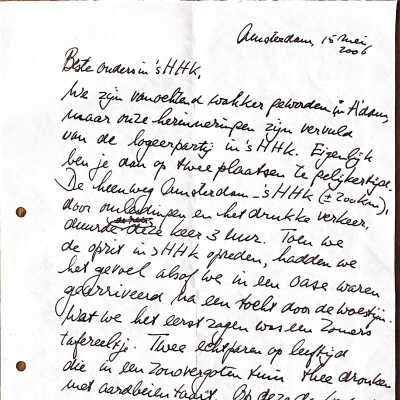 Amsterdam, 15 mei,
2006
Beste ouders in 's HHK,
We zijn vanochtend wakker geworden in A'dam,
maar onze herinneringen zijn vervuld
van de logeerpartij in 's HHK. Eigenlijk
ben je dan op twee plaatsen te gelijkertijd.
De heenweg Amsterdam - 's HHK (± 200km),
door omleidingen en het drukke verkeer,
duurde deze keer 3 uur. Toen we
de oprit in 's HHK opreden, hadden we
het gevoel alsof we in een oase waren
gearriveerd na een tocht door de woestijn.
Wat we het eerst zagen was een zomers
tafereeltje. Twee echtparen op leeftijd
die in een zonovergoten tuin thee dronken
met aardbeientaart. Op deze